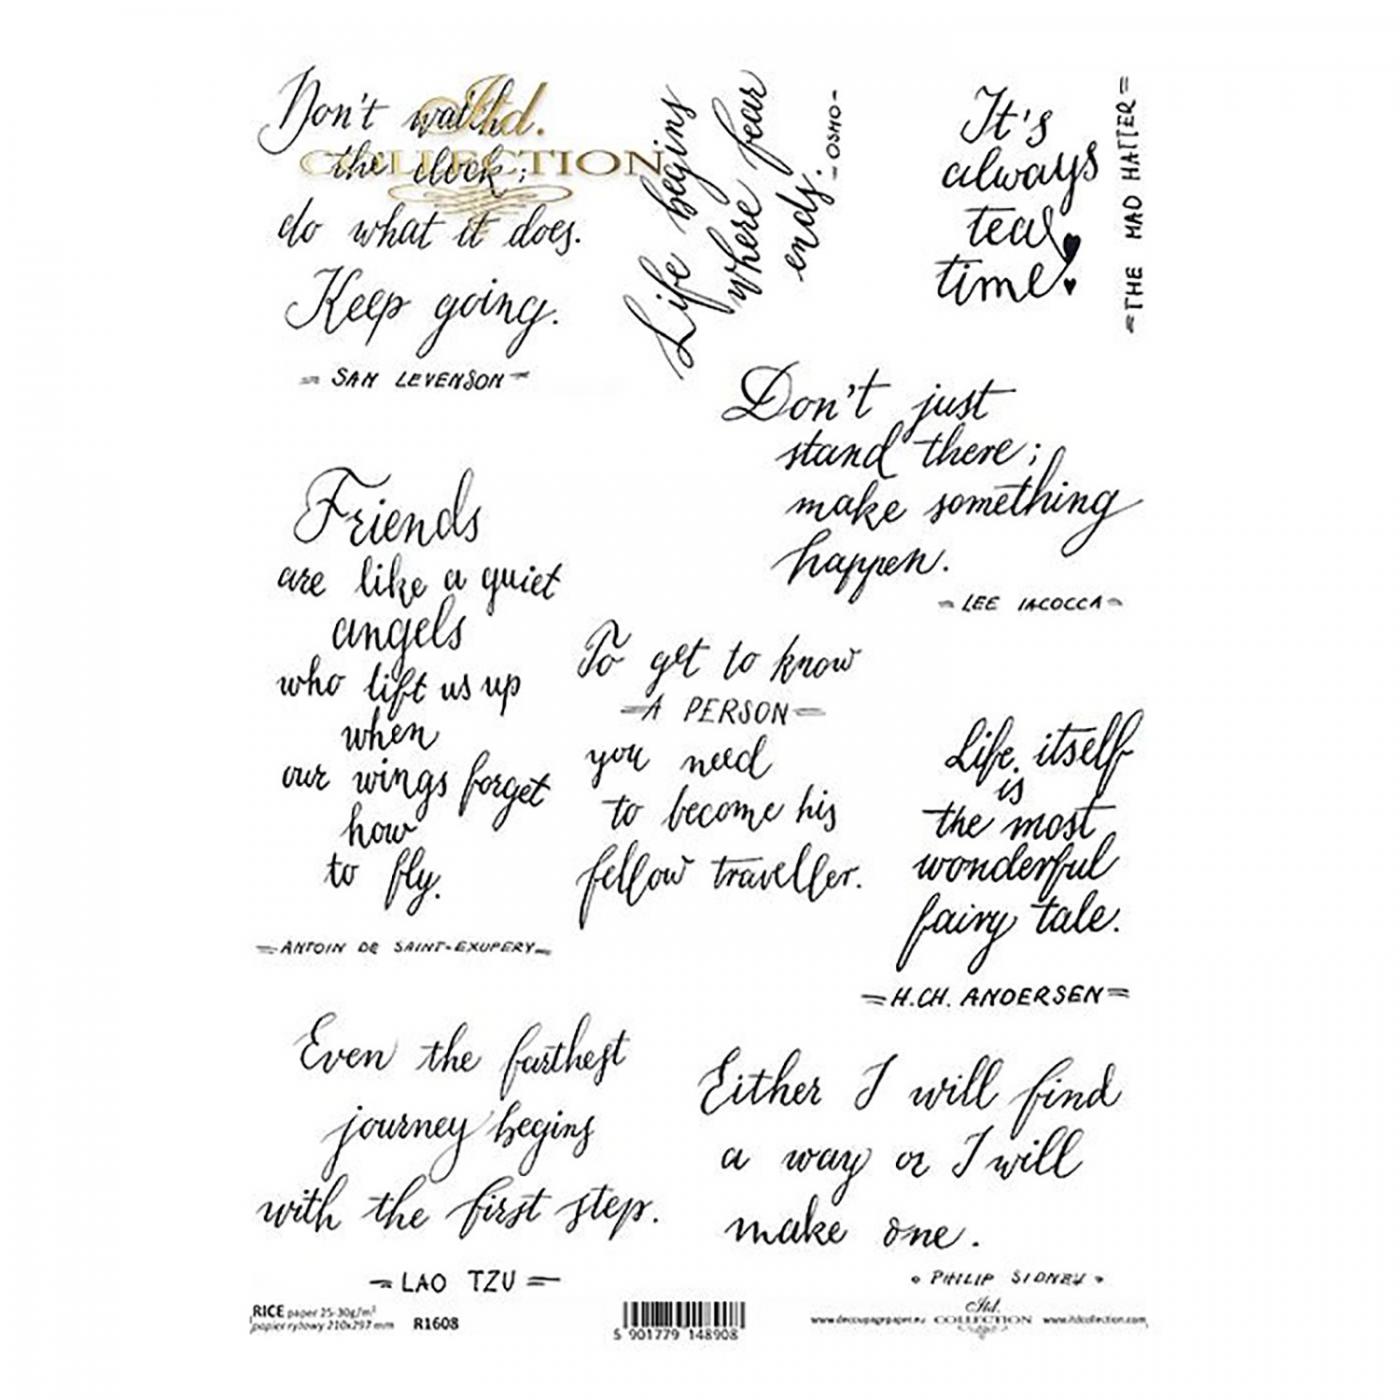 Don't watch
the clock;
do what it does.
Keep going.
SAM LEVENSON
Itd.
COLLECTION
Life begins
where fear
ends.
-OSHO-
It's
always
tea
time!
THE MAD HATTER
Don't just
stand there;
make something
happen.
LEE IACOCCA
Friends
are like a quiet
angels
who lift us up
when
our wings forget
how
to fly.
ANTOIN DE SAINT-EXUPERY
To get to know
A PERSON
you need
to become his
fellow traveller.
Life itself
is
the most
wonderful
fairy tale.
H.CH. ANDERSEN
Even the farthest
journey begins
with the first step.
LAO TZU
Either I will find
a way or I will
make one.
PHILIP SIDNEY
RICE paper 25-30g/m²
papier ryżowy 210x297 mm R1608
5 901779 148908
Itd.
www.decoupagepaper.eu COLLECTION www.itdcollection.com